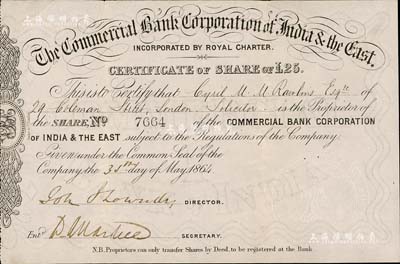 The Commercial Bank Corporation of India & the East.
INCORPORATED BY ROYAL CHARTER.
CERTIFICATE OF SHARE OF £25.
This is to Certify that Cyril M. M. Rawlins Esqre of
29 Coleman Street, London Solicitor is the Proprietor of
the SHARE, No 7664 of the COMMERCIAL BANK CORPORATION
OF INDIA & THE EAST subject to the Regulations of the Company.
Given under the Common Seal of the
Company, the 3 day of May 1864
DIRECTOR.
Entd
SECRETARY.
N.B. Proprietors can only transfer Shares by Deed, to be registered at the Bank